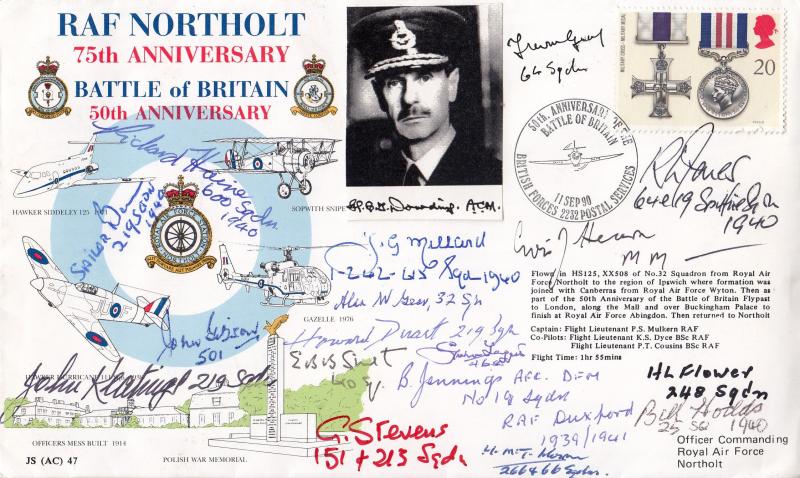 RAF NORTHOLT
75th ANNIVERSARY
BATTLE of BRITAIN
50th ANNIVERSARY
Trevor Gray
64 Sqdn
MILITARY CROSS · MILITARY MEDAL
20
50th. ANNIVERSARY OF THE
BATTLE OF BRITAIN
11 SEP 90
BRITISH FORCES 2232 POSTAL SERVICES
Richard Haine
600 Sqdn
1940
219 Sqdn
1940
HAWKER SIDDELEY 125 1971
SOPWITH SNIPE
Dowding. ACM.
R L Jones
64 & 19 Spitfire Sqdn
1940
ROYAL AIR FORCE STATION
J. G Millard
1-242-615 Sqdn 1940
MM
Alec W Gear, 32 Sqn
GAZELLE 1976
Flown in HS125, XX508 of No.32 Squadron from Royal Air
Force Northolt to the region of Ipswich where formation was
joined with Canberras from Royal Air Force Wyton. Then as
part of the 50th Anniversary of the Battle of Britain Flypast
to London, along the Mall and over Buckingham Palace to
finish at Royal Air Force Abingdon. Then returned to Northolt
Captain: Flight Lieutenant P.S. Mulkern RAF
Co-Pilots: Flight Lieutenant K.S. Dyce BSc RAF
Flight Lieutenant P.T. Cousins BSc RAF
Flight Time: 1hr 55mins
John Gibson
501
Howard Duart 219 Sqn
HAWKER HURRICANE
John Keatings 219 Sqdn
B. Jennings AFC. DFM
No 19 Sqdn
RAF Duxford
1939/1941
HL Flower
248 Sqdn
Bill Hodds
25 Sq 1940
G. Stevens
151 + 213 Sqdn
266 & 66 Sqdn.
OFFICERS MESS BUILT 1914
POLISH WAR MEMORIAL
Officer Commanding
Royal Air Force
Northolt
JS (AC) 47